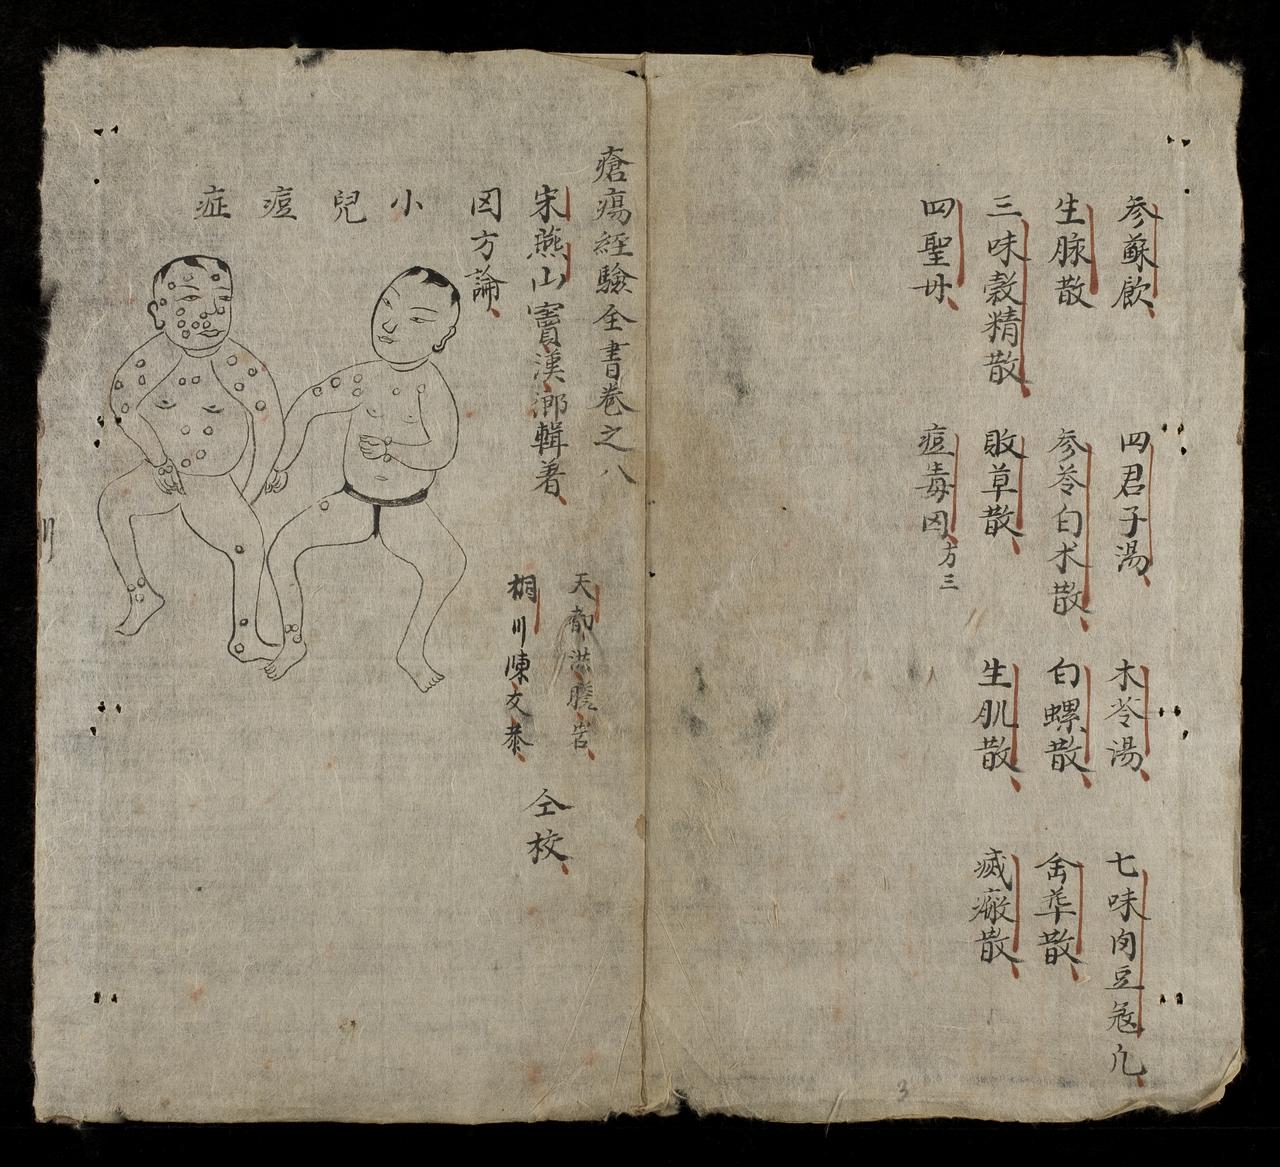 参蘇飲 四君子湯 木苓湯 七味肉豆蔻凢
生脉散 参苓白术散 白螺散
三味穀精散 敗草散 生肌散 滅瘢散
四聖丹 痘毒図方三
瘡瘍經驗全書巻之八
宋燕山竇漢卿輯著
天都洪瞻岩
桐川陳友恭
仝校
図方論
小兒痘症